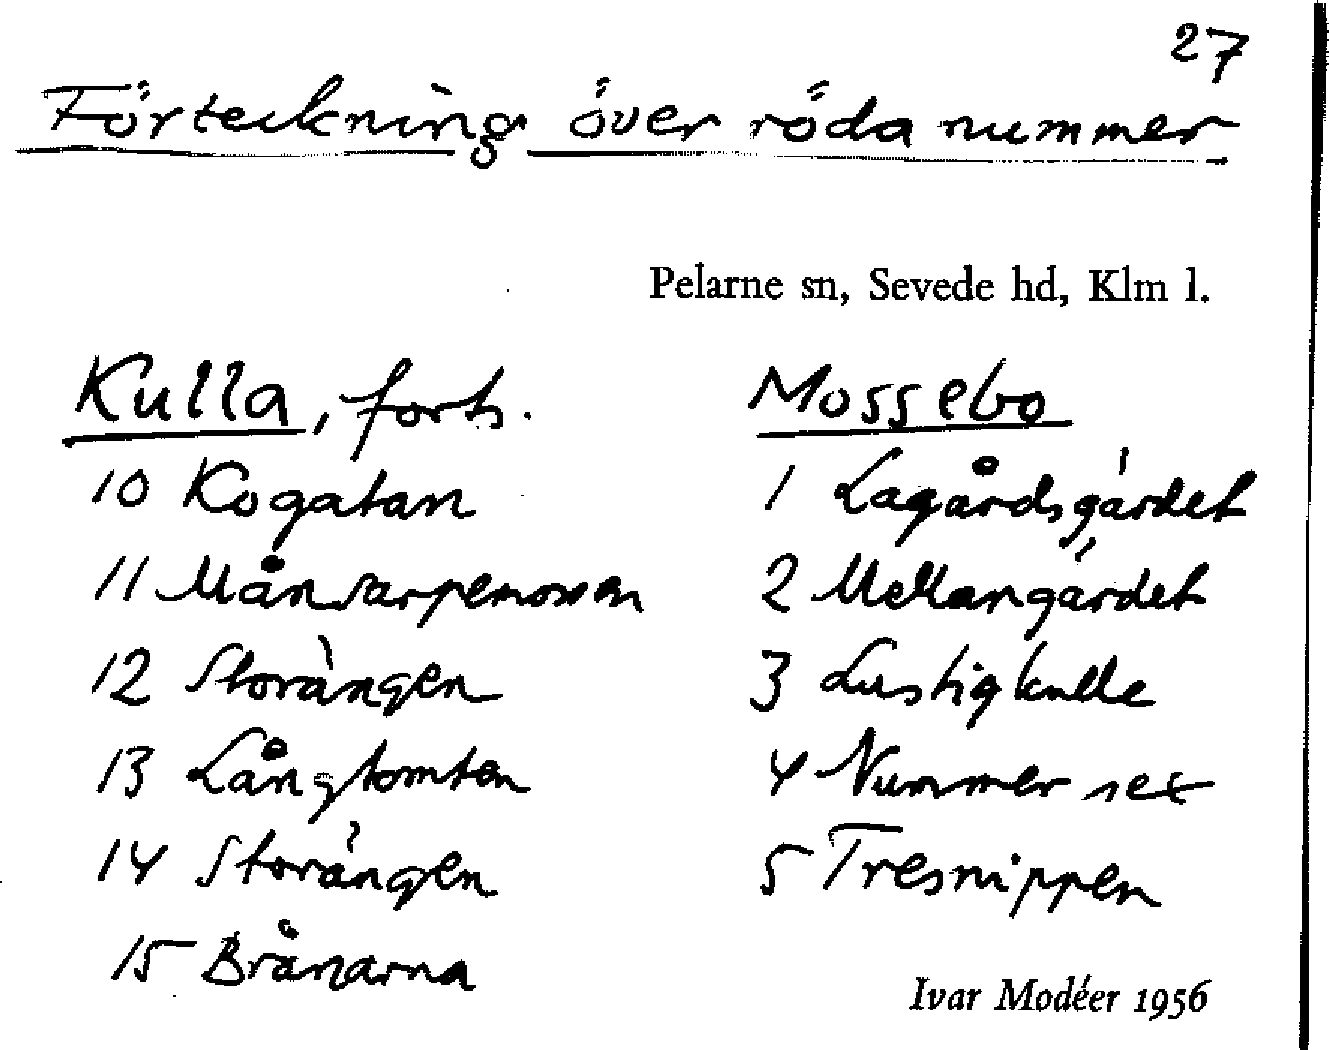 27
Förteckning över röda nummer
Pelarne sn, Sevede hd, Klm l.
Kulla, forts.
10 Kogatan
11 Månsarpemossen
12 Storängen
13 Långtomten
14 Storängen
15 Brånarna
Mossebo
1 Lagårdsgärdet
2 Mellangärdet
3 Lustigkulle
4 Nummer sex
5 Tresnippen
Ivar Modéer 1956